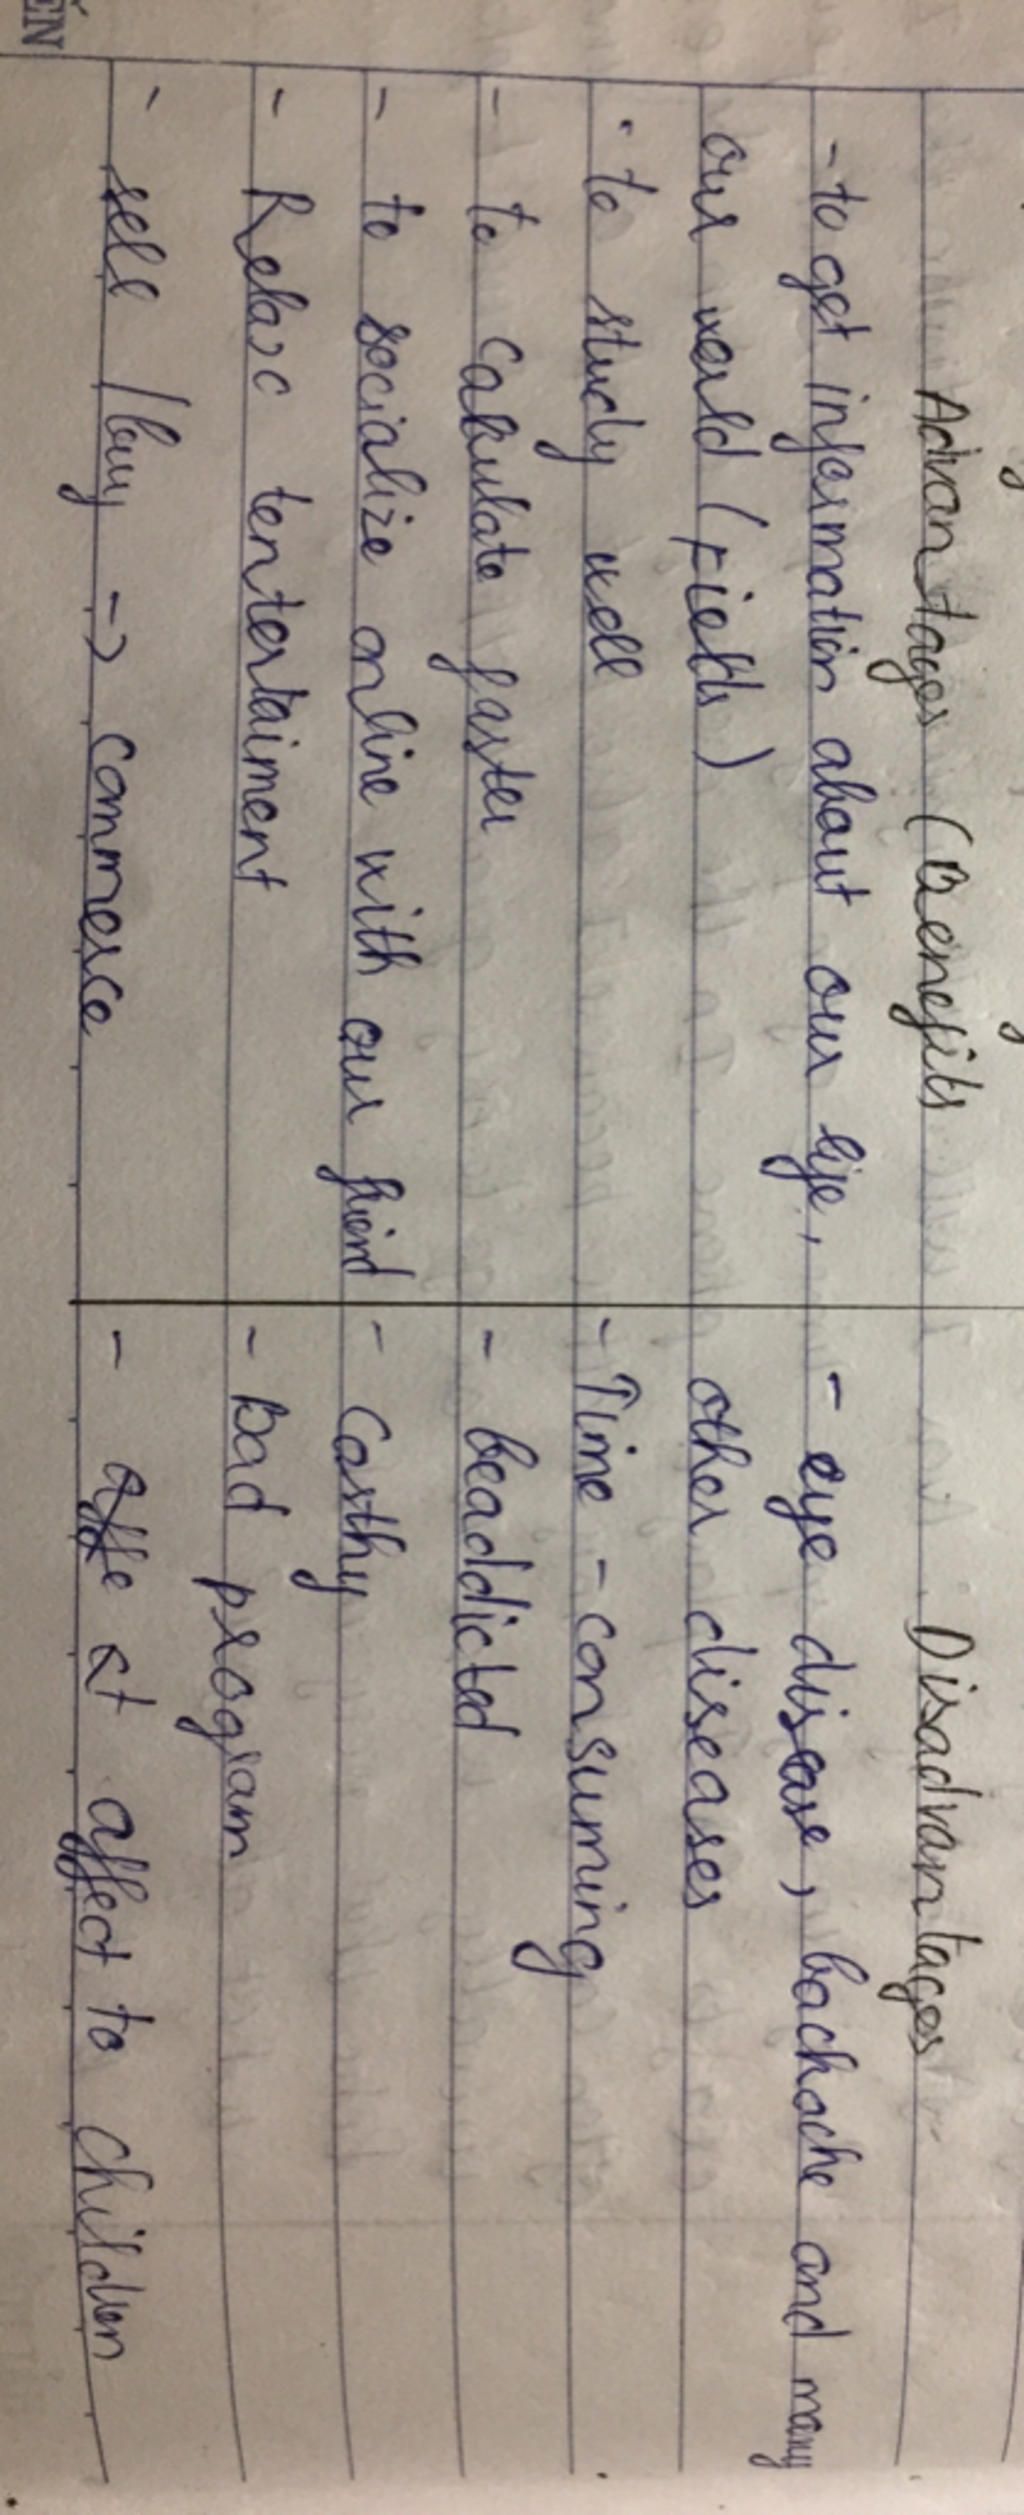 Advantages (Benefits
Disadvantages
- to get information about our life,
our world (fields)
- to study well
- to calculate faster
- to socialize online with our friend
- Relax tentertaiment
- sell / buy -> commerce
- eye disease, backache and many
other diseases
- Time - consuming
- beaddicted
- Costly
- bad program
- affe at affect to children
ẾN